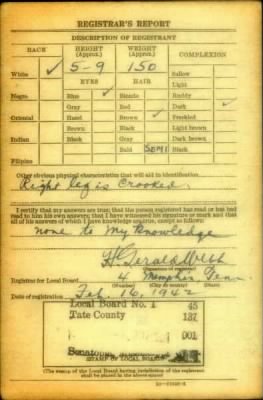 REGISTRAR'S REPORT
DESCRIPTION OF REGISTRANT
RACE HEIGHT (Approx.) WEIGHT (Approx.) COMPLEXION
White ✓ 5-9 150 Sallow
EYES HAIR Light
Negro Blue ✓ Blonde Ruddy
Gray Red Dark ✓
Oriental Hazel Brown ✓ Freckled
Brown Black Light brown
Indian Black Gray Dark brown
Bald SEMI Black
Filipino
Other obvious physical characteristics that will aid in identification
Right leg is Crooked.
I certify that my answers are true; that the person registered has read or has had
read to him his own answers; that I have witnessed his signature or mark and that
all of his answers of which I have knowledge are true, except as follows:
none to my knowledge
H Gerald Webb
(Signature of registrar)
Registrar for Local Board 4 Memphis Tenn
(Number) (City or county) (State)
Date of registration Feb. 16, 1942
Local Board No. 1 45
Tate County 137
001
Senatobia,
(STAMP OF LOCAL BOARD)
(The stamp of the Local Board having jurisdiction of the registrant
shall be placed in the above space)